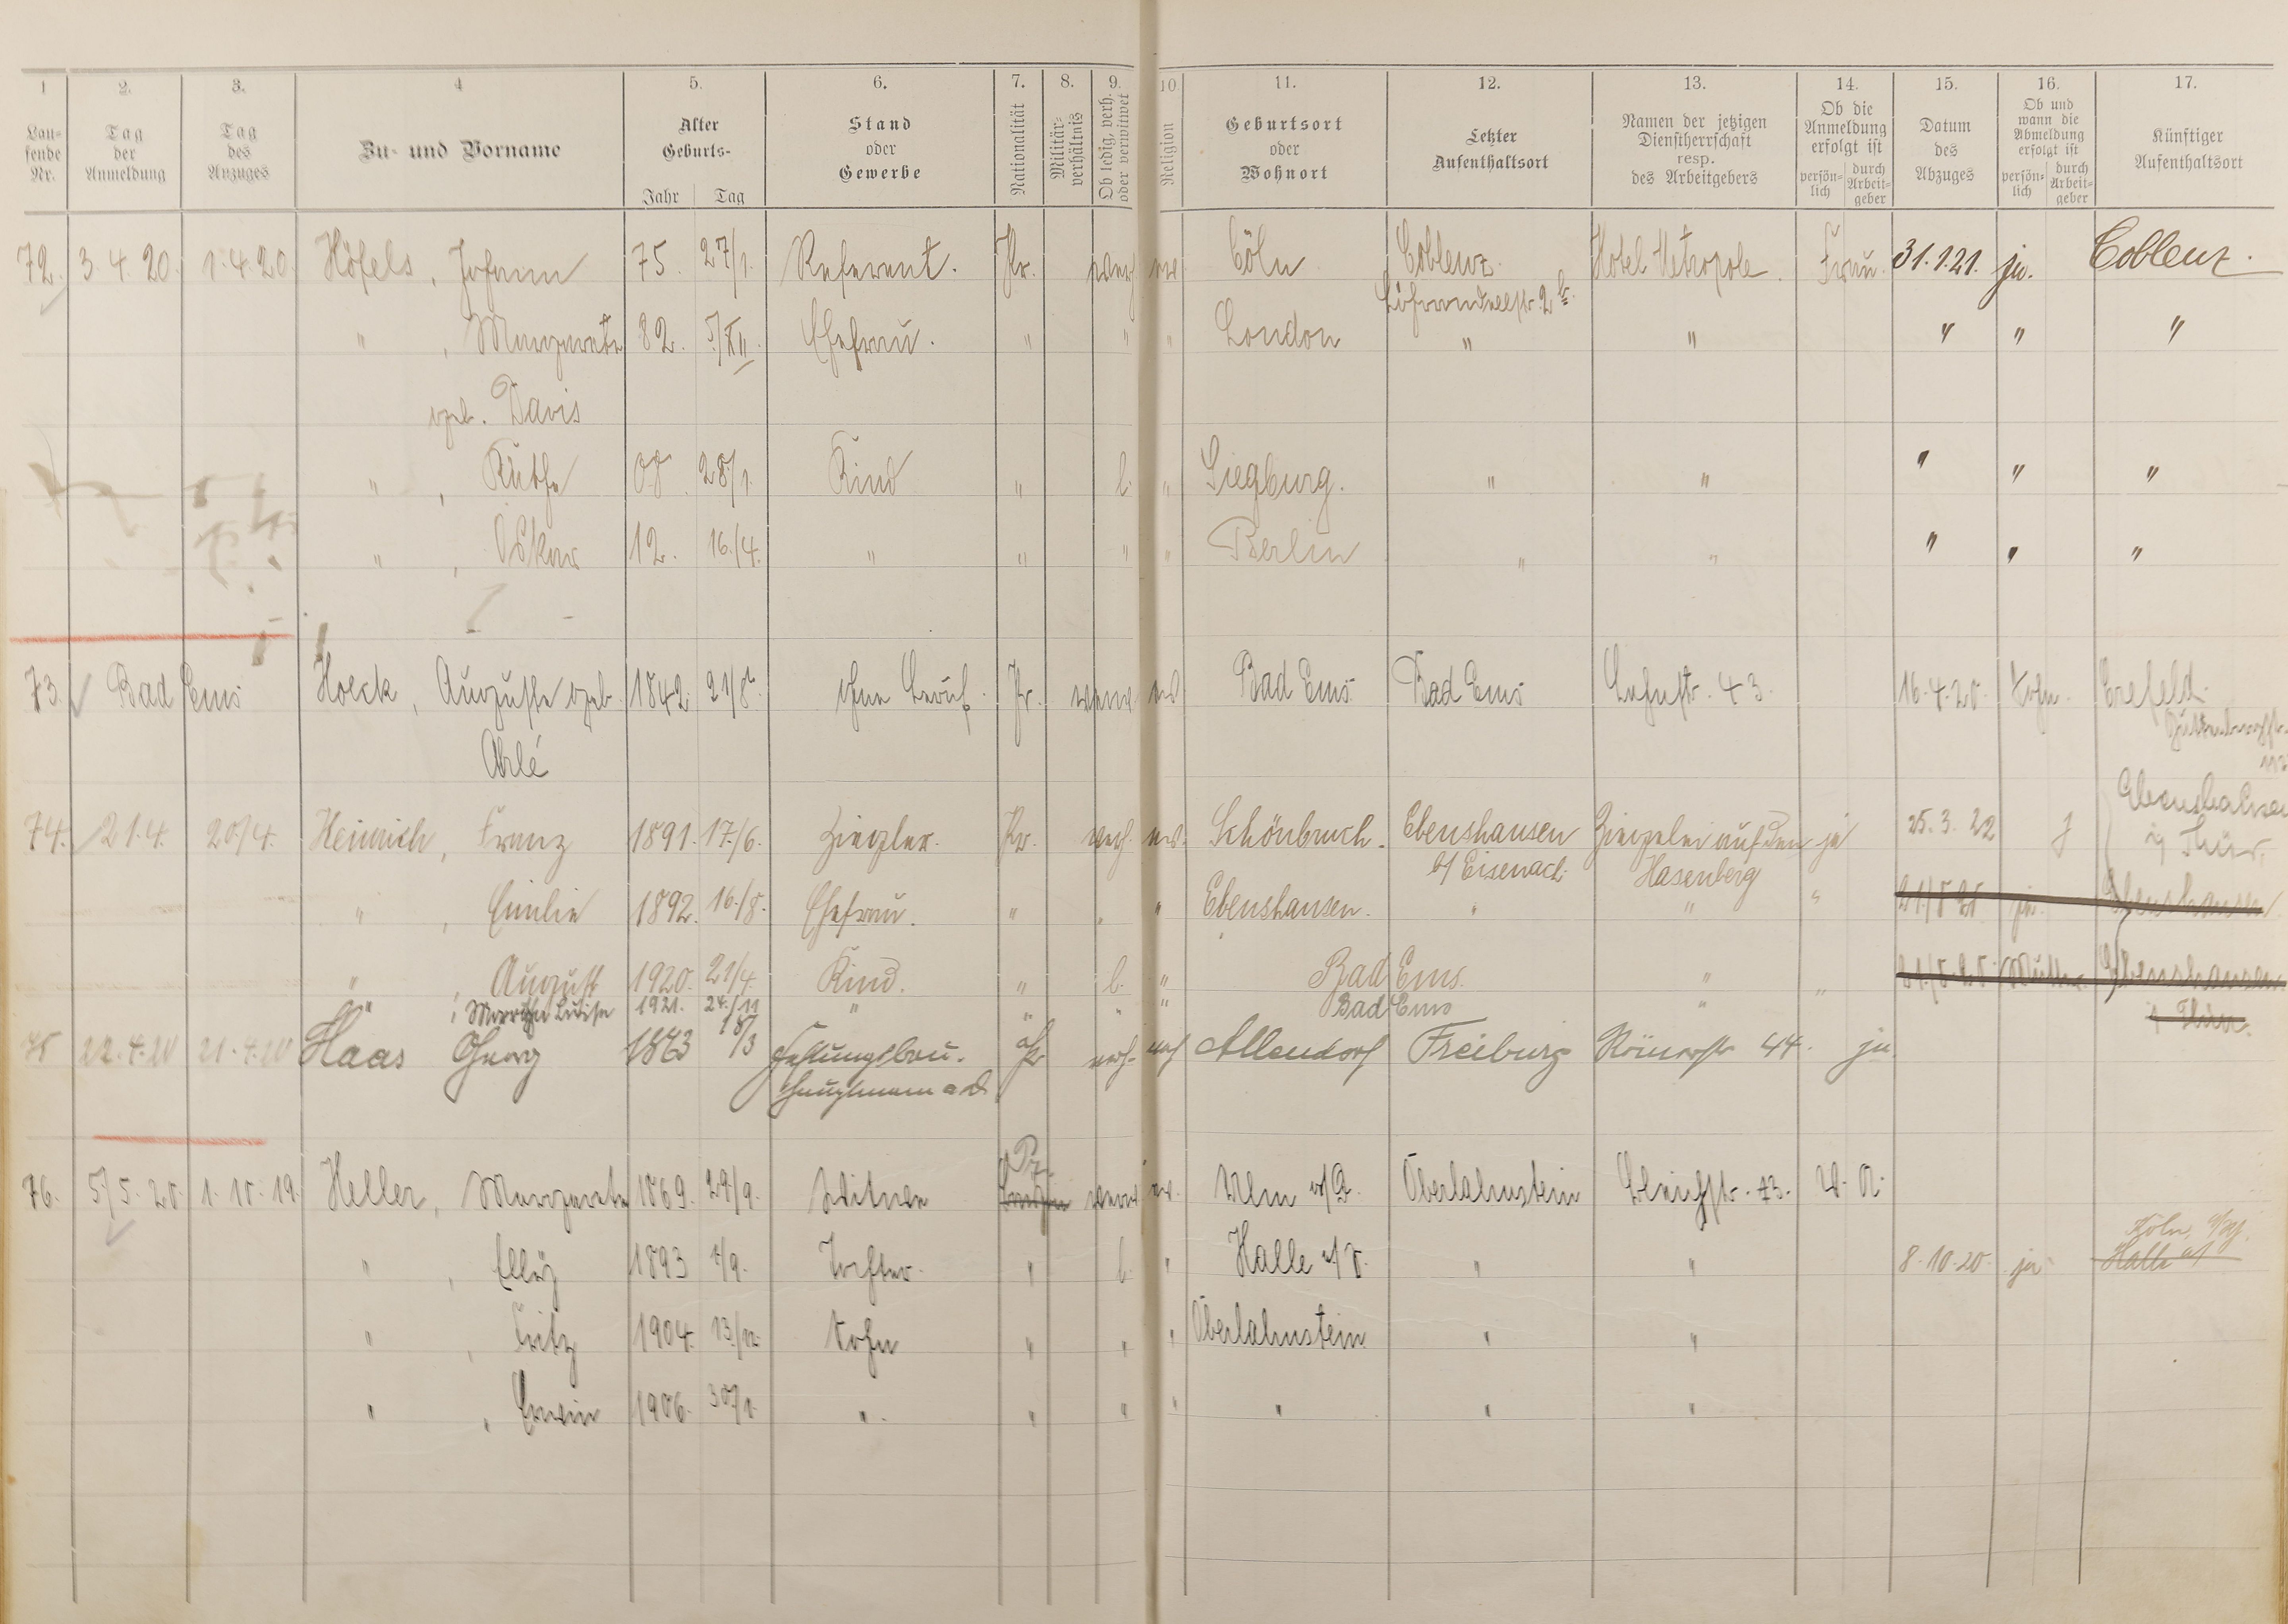 1 2. 3. 4 5. 6. 7. 8. 9. 10 11. 12. 13. 14. 15. 16. 17.
Lau-fende Nr. Tag der Anmeldung Tag des Anzuges Zu- und Vorname Alter Geburts- Jahr Tag Stand oder Gewerbe Nationalität Militär-verhältnis Ob ledig, verh. oder verwitwet Religion Geburtsort oder Wohnort Letzter Aufenthaltsort Namen der jetzigen Dienstherrschaft resp. des Arbeitgebers Ob die Anmeldung erfolgt ist persön-lich durch Arbeit-geber Datum des Abzuges Ob und wann die Abmeldung erfolgt ist persön-lich durch Arbeit-geber Künftiger Aufenthaltsort
72. 3.4.20. 1.4.20. Höfels, Johann 75. 27/1. Referent. Pr. verh. ev. Cöln Coblenz. Hotel Metropole. Frau. 31.1.21. ja. Coblenz.
" , Margarete 82. 5/XII. Ehefrau. " " " London " " " " "
geb. Davis
" , Käthe 08. 28/1. Kind " l. " Siegburg. " " " " "
" , Oskar 12. 16./4. " " " " Berlin " " " " "
73. Bad Ems Hoeck, Auguste geb. 1842. 21/8. ohne Beruf. Pr. verw. ev. Bad Ems Bad Ems Lahnstr. 43. 16.4.20. Sohn. Crefeld.
Ahlé
74. 21.4. 20/4. Heinrich, Franz 1891. 17./6. Ziegler. Pr. verh. ev. Schönbruch. Ebenshausen Ziegelei auf dem ja 25.3.22 J Ebenshausen
b/ Eisenach. Hasenberg i/ Thür.
" , Emilie 1892. 16./8. Ehefrau. " " " Ebenshausen. " " " ja. Ebenshausen
" , August 1920. 21/4. Kind. " l. " Bad Ems. " " Mutter Ebenshausen
" , Luise 1921. 24./11 " " " " Bad Ems " i/ Thür.
75 22.4.20 21.4.20 Haas Georg 1863 18/3 Festungsbau. Pr verh. Allendorf Freiburg Römerstr 44. ja
Hauptmann a.D.
Pr.
76. 5/5.20. 1.10.19. Heller, Margarete 1869. 29/9. Witwe verw. ev. Ulm a/D. Oberlahnstein Bleichstr. 13. W. A.
" , Elly 1893 Tochter. " l. " Halle a/S. " " 8.10.20. ja Köln, a/Rh. Halle a/
" , Fritz 1904. 13/12. Sohn " " " Oberlahnstein " "
" , Erwin 1906. 30/1. " " " " " " "